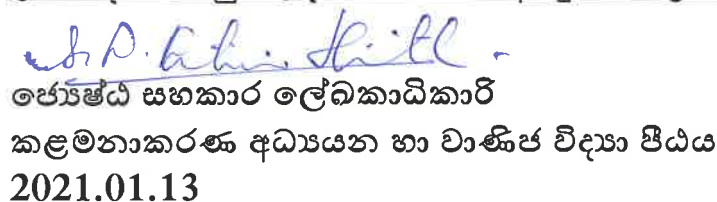 ජ්‍යෙෂ්ඨ සහකාර ලේඛකාධිකාරී
කළමනාකරණ අධ්‍යයන හා වාණිජ විද්‍යා පීඨය
2021.01.13